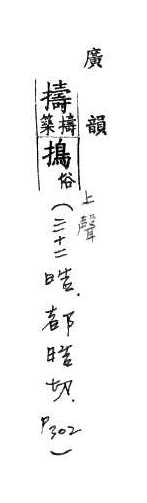 廣韻
擣
擣築
搗俗
上聲
(三十二晧.都晧切.P302)